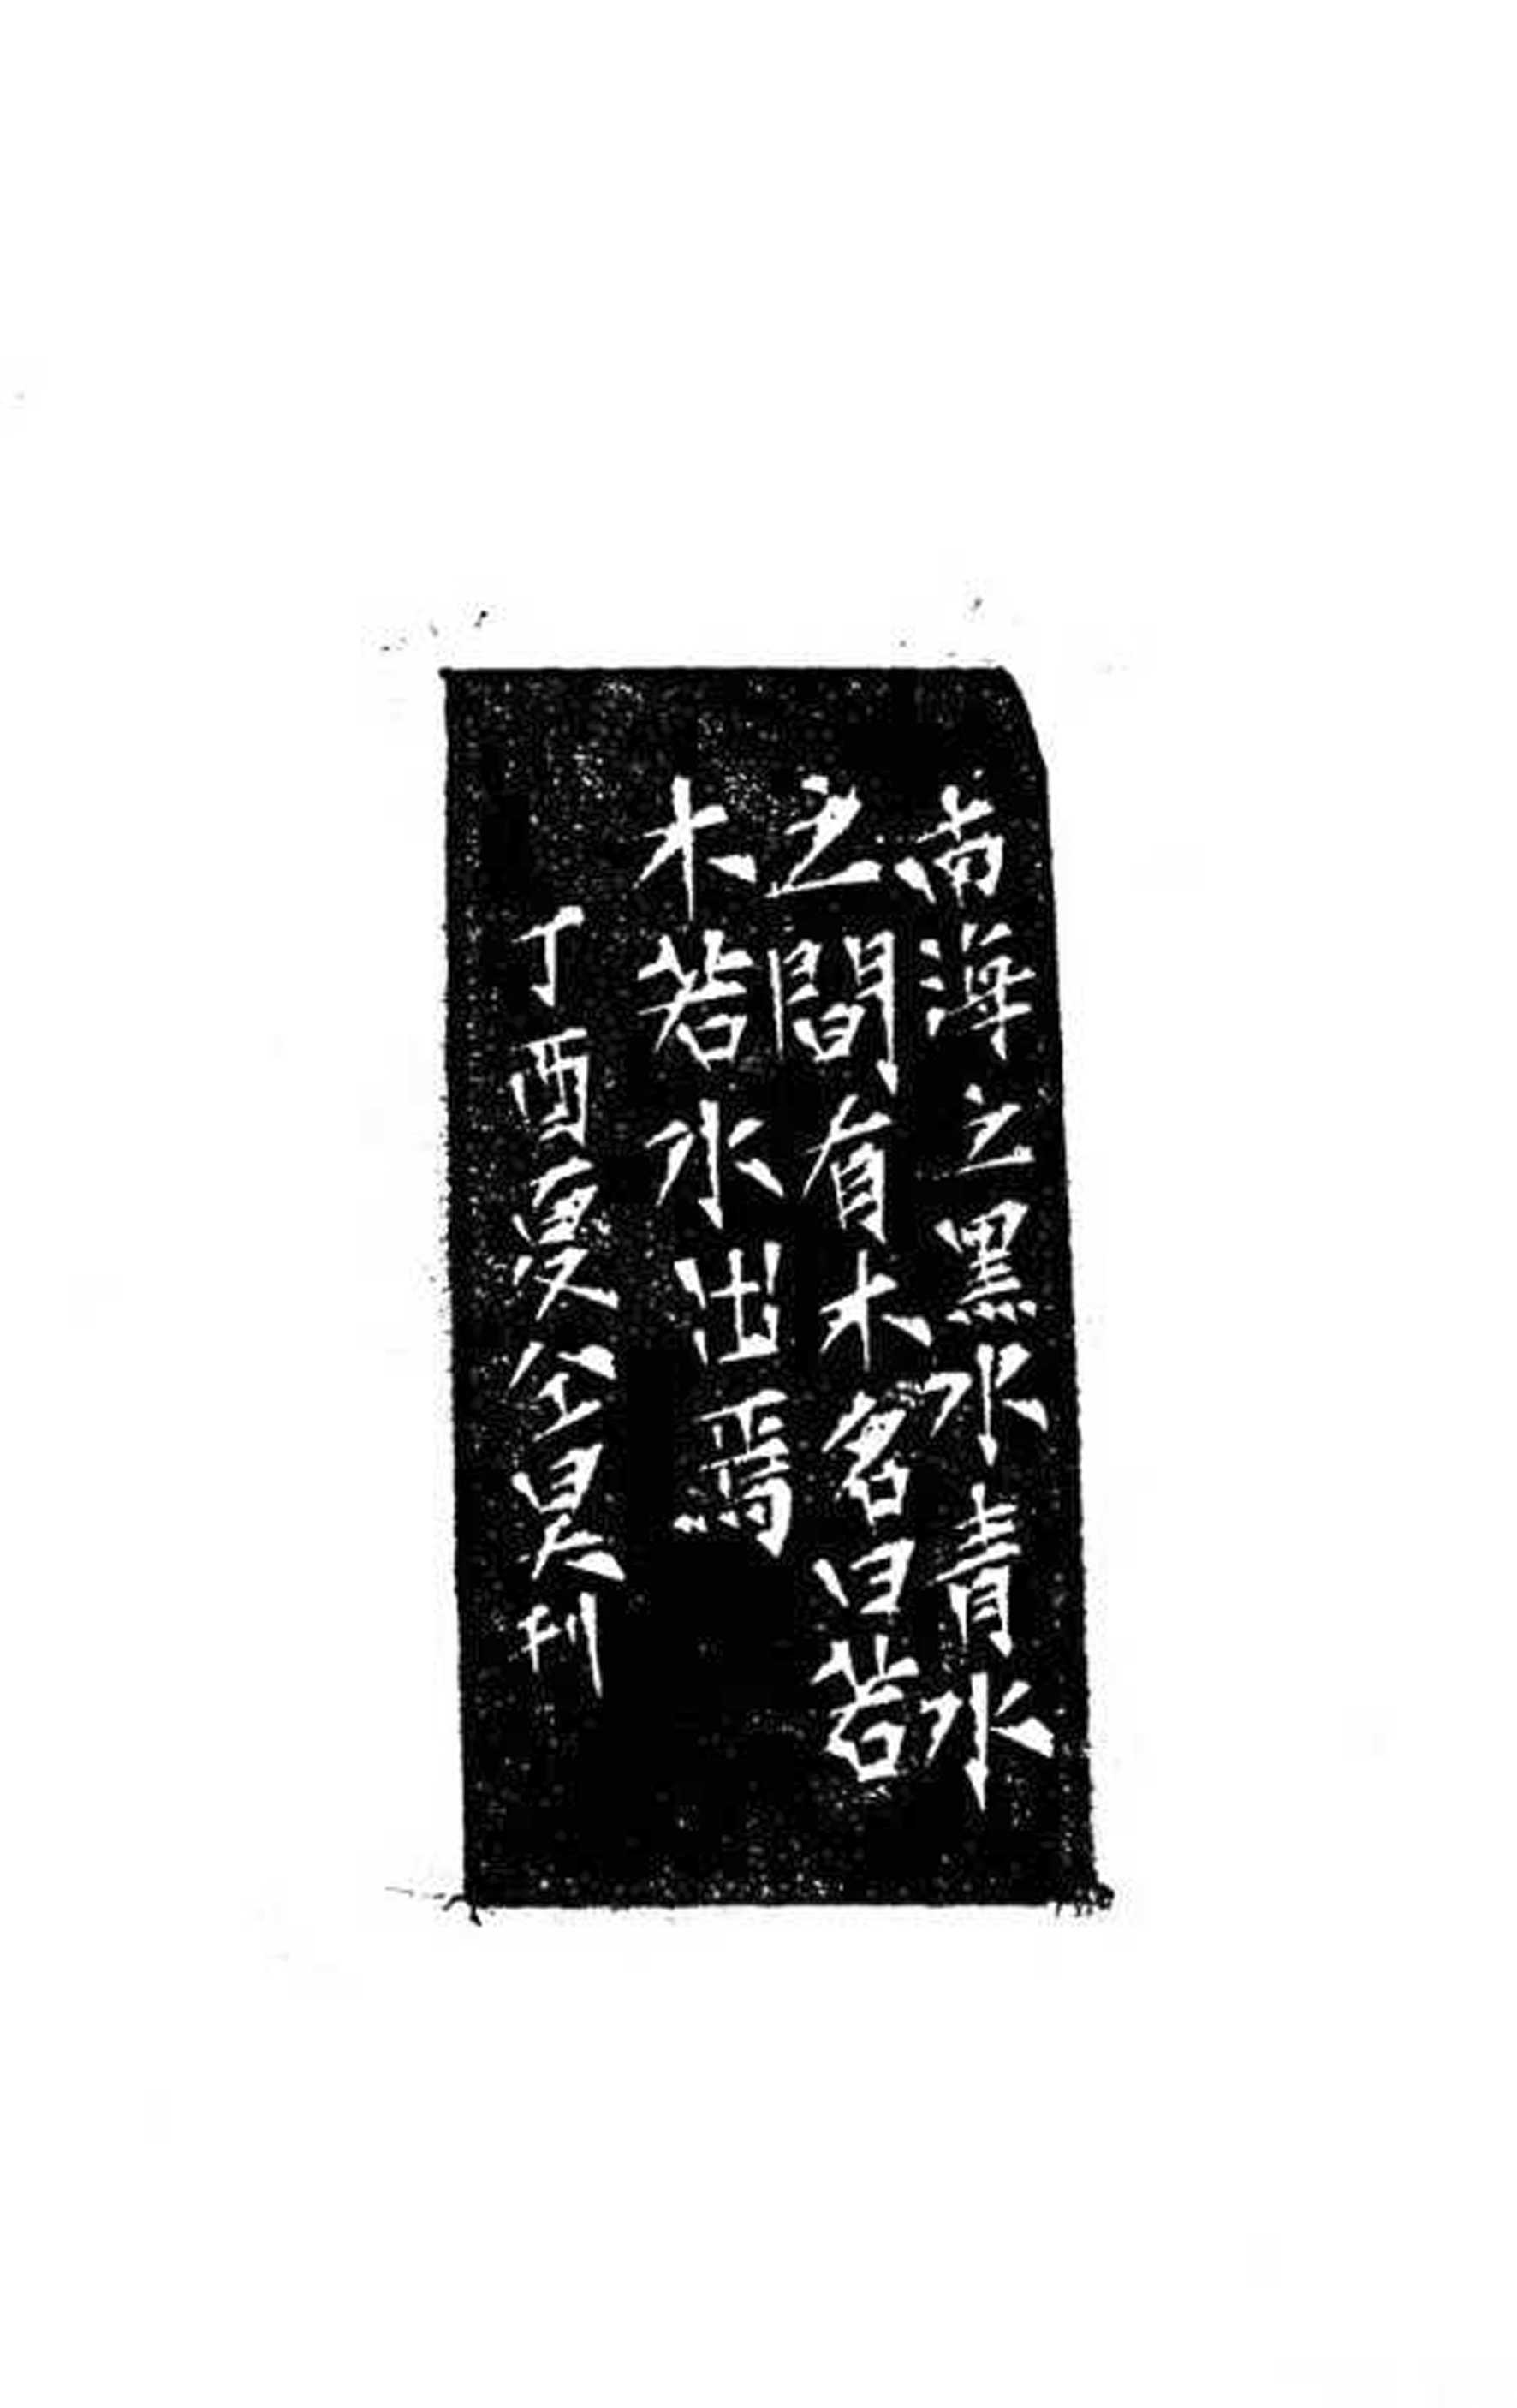 南海之黑水青水
之間有木名曰若
木若水出焉
丁酉夏仝昊刊